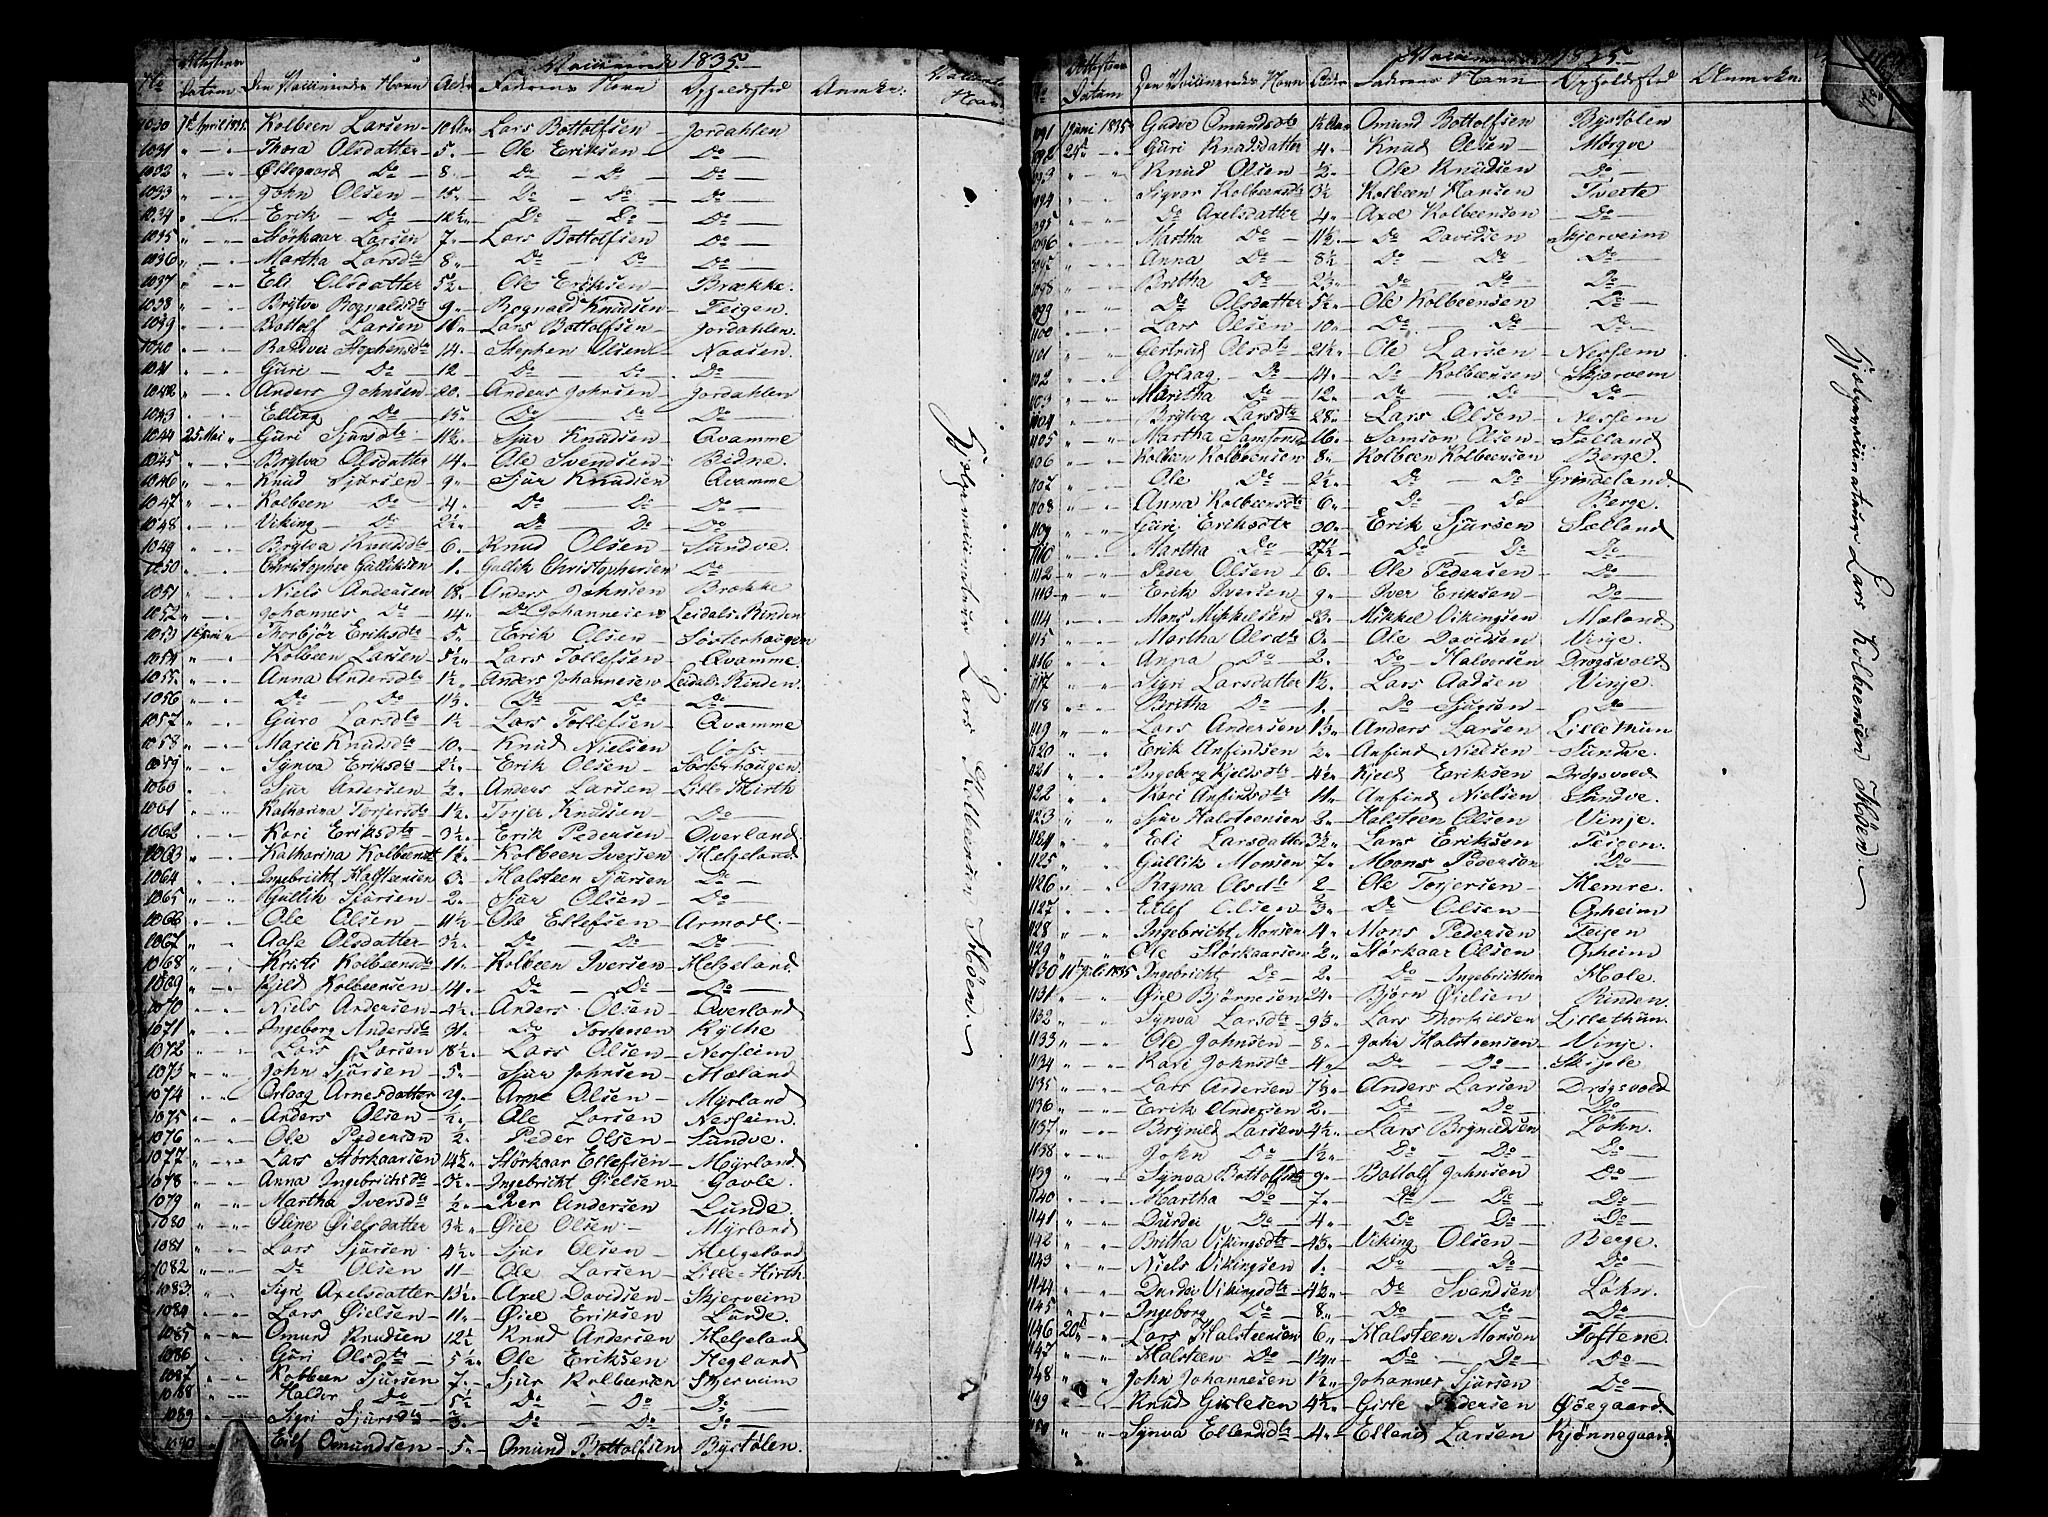 Vaccinerede 1835.
No Attestens Datum Den Vaccineredes Navn Alder Faderens Navn Opholdssted Anmærkn: Navn
1030 7de April 1835. Kolbeen Larsen 10 Aar Lars Bottolfsen Jordahlen
1031 " " Thora Olsdatter 5 " Ole Eriksen Do
1032 " " Do 8 " Do Do Do
1033 " " John Olsen 15 " Do Do Do
1034 " " Erik Do Do Do Do
1035 " " Störkaar Larsen 7 " Lars Bottolfsen Do
1036 " " Martha Larsdtr 8 " Do Do Do
1037 " " Eli Olsdatter 5½ " Ole Eriksen Brække.
1038 " " Brytva Rognaldsdtr 9 " Rognald Knudsen Teigen.
1039 " " Bottolf Larsen Lars Bottolfsen Jordahlen.
1040 " " Stephensdtr 14 " Stephen Olsen Naasen.
1041 " " Guri Do 12 Do Do Do
1042 " " Anders Johnsen 20 " Anders Johnsen Jordahlen
1043 " " Elling Do 15 " Do Do Do
1044 25 Mai " Guri Sjursdtr 11½ " Sjur Knudsen Qvamme
1045 " " Brytva Olsdatter 14 " Ole Svendsen Bidne.
1046 " " Knud Sjursen 9 " Sjur Knudsen Qvamme
1047 " " Kolbeen Do 4 " Do Do Do
1048 " " Viking Do 2½ " Do Do Do
1049 " " Brytva Knudsdtr 6 " Knud Olsen Sundve.
1050 " " Christopher Gulliksen 1 " Gullik Christophersen Do
1051 " " Niels Andersen 18 " Anders Johnsen Brække
1052 " " Johannes Do 14 " Do Johannesen Leidals Rinden
1053 1ste Juni " Thorbjör Eriksdtr 5 " Erik Olsen Sösterhaugen
1054 " " Kolbeen Larsen 5½ " Lars Tollefsen Qvamme.
1055 " " Anna Andersdtr 1½ " Anders Johannesen Leidals Rinden.
1056 " " Do Do Do Do Do
1057 " " Guro Larsdtr 1½ Lars Tollefsen Qvamme
1058 " " Marie Knudsdtr 10 " Knud Nielsen Voss
1059 " " Synva Eriksdtr 2½ " Erik Olsen Sösterhaugen.
1060 " " Sjur Andersen 2 " Anders Larsen Lille Hirth
1061 " " Katharina Torjersdtr 1½ Torjer Knudsen Do
1062 " " Kari Eriksdtr 3½ " Erik Pedersen Qverland
1063 " " Katharina Kolbeensdtr 1½ " Kolbeen Iversen Helgeland
1064 " " Ingebricht Halsteensen 3 " Halsteen Sjursen Do
1065 " " Gullik Sjursen 2 " Sjur Olsen Do
1066 " " Ole Olsen 11½ Ole Ellefsen Armodt
1067 " " Aase Olsdatter 3½ " Do Do Do
1068 " " Kristi Kolbeensdtr 11 " Kolbeen Iversen Helgeland.
1069 " " Kolbeensen 14 " Do Do Do
1070 " " Niels Andersen 4½ " Anders Olsen Qverland
1071 " " Ingeborg Andersdtr 31 " Do Kylhe
1072 " " Lars Larsen 18½ " Lars Olsen Nerheim
1073 " " John Sjursen 5 " Sjur Johnsen Mæland
1074 " " Orlaag Arnesdatter 29 " Arne Olsen Myrland
1075 " " Anders Olsen ½ " Ole Larsen Nerheim
1076 " " Ole Pedersen ½ Peder Olsen Sundve.
1077 " " Lars Störkaarsen 14½ Störkaar Ellefsen Myrland
1078 " " Anna Ingebrichtsdtr 3½ " Ingebricht Gielsen Gavle.
1079 " " Martha Iversdtr ½ " Iver Andersen Lunde.
1080 " " Oline Øielsdatter 3½ Øiel Olsen Myrland
1081 " " Lars Sjursen 4½ " Sjur Olsen Helgeland
1082 " " Do Olsen 11 Ole Larsen Lille-Hirth
1083 " " Sigri Axelsdatter 13½ Axel Davidsen Skjerveim
1084 " " Lars Øielsen 11 " Øiel Eriksen Lunde.
1085 " " Omund Knudsen 12½ Knud Andersen Helgeland
1086 " " Guri Olsdtr 5½ " Ole Eriksen Hegland
1087 " " Kolbeen Sjursen 7 " Sjur Kolbeensen Skjerveim
1088 " " Haldor Do 5½ Do Do Do
1089 " " Sigri Sjursdtr Do Do Do
1090 " Elef Omundsen 5 " Omund Bottolfsen Bystölen.
Hjælpevaccinateur Lars Kolbeensen Möen.
Vaccinerede 1835.
No Attestens Datum Den Vaccineredes Navn Alder Faderens Navn Opholdssted Anmærkn:
1091 1 Juni 1835 Gudve Omundsdtr 1½ Aar Omund Bottolfsen Bystölen
1092 25de " Guri Knudsdatter 4 " Knud Olsen Mörqve
1093 " " Knud Olsen ½ " Ole Knudsen Do
1094 " " Signor Kolbeensdtr 3½ Kolbeen Hansen Tverte
1095 " " Do Axelsdatter 4 " Axel Kolbeensen Do
1096 " " Martha Do 11½ " Do Davidsen Skjerveim
1097 " " Anna Do 8½ Do Do Do
1098 " " Britha Do Do Do Do
1099 " " Do Olsdatter 5½ " Ole Kolbeensen Do
1100 " " Lars Olsen 10 " Do Do Do
1101 " " Gertrud Olsdtr 21½ " Ole Larsen Nerhem
1102 " " Orlaag Do 14 " Do Kolbeensen Skjervem
1103 " " Maritha Do 12 " Do Do Do
1104 " " Brytva Larsdtr 28 " Lars Olsen Nerhem
1105 " " Martha Samsonsd 16 " Samson Olsen Sælland
1106 " " Kolbeen Kolbeensen 8 " Kolbeen Kolbeensen Berge.
1107 " " Ole Do 2½ " Do Do Grindeland
1108 " " Anna Kolbeensdtr 6 " Do Do Berge
1109 " " Guri Eriksdtr 30 " Erik Sjursen Sælland
1110 " " Martha Do 27½ Do Do Do
1112 " " Peder Olsen 6 " Ole Pedersen Do
1113 " " Erik Iversen 9 " Iver Eriksen Do
1114 " " Mons Mikkelsen 23 " Mikkel Vikingsen Mæland
1115 " " Martha Olsdtr 3 " Ole Davidsen Vinje.
1116 " " Anna Do 2 " Do Halvorsen Drogsvold
1117 " " Sigri Larsdatter 1½ " Lars Aadsen Vinje.
1118 " " Britha Do 1 " Do Sjursen Do
1119 " " Lars Andersen Anders Larsen Lillethun
1120 " " Erik Anfindsen 2 " Anfind Nielsen Sundve.
1121 " " Ingeborg Kjeldsdtr 4½ " Kjeld Eriksen Drögsvold
1122 " " Kari Anfindsdtr 11 " Anfind Nielsen Sundve.
1123 " " Sjur Halsteensen 2 " Halsteen Olsen Vinje.
1124 " " Eli Larsdatter 3½ " Lars Eriksen Teigen.
1125 " " Gullik Monsen 7 " Mons Pedersen Do
1126 " " Rogna Olsdtr 2 Ole Torjersen Hemre.
1127 " " Ellef Olsen Do Olsen Opheim
1128 " " Ingebricht Monsen 4 " Mons Pedersen Teigen
1129 " " Ole Störkaarsen ½ " Störkaar Olsen Opheim
1130 11te Juli 1835 Ingebricht Do 2 " Do Ingebrichtsen Hole.
1131 " " Øiel Björnesen 24 " Björn Øielsen Rinden
1132 " " Synva Larsdtr Lars Thorkilsen Lillethun.
1133 " " Ole Johnsen 8 " John Halsteensen Vinje
1134 " " Kari Johnsdtr 4 " Do Do Skjple
1135 " " Lars Andersen Anders Larsen Drögsvold
1136 " " Erik Andersen 2 " Do Do Do
1137 " " Brynild Larsen 4½ " Lars Brynildsen Löhn.
1138 " " John Do 1½ Do Do Do
1139 " " Synva Bottolfsdtr 9 " Bottolf Johnsen Do
1140 " " Martha Do 7 " Do Do Do
1141 " " Durdei Do 4 " Do Do Do
1142 " " Britha Vikingsdtr Viking Olsen Berge.
1143 " " Niels Vikingsen 1 " Do Do Do
1144 " " Durdei Vikingsdtr 4½ " Do Svendsen Löhn.
1145 " " Ingeborg Do 8 " Do Do Do
1146 20de " Lars Halsteensen 6 " Halsteen Monsen Toftene
1147 " " Halsteen Do Do Do Do
1148 " " John Johannesen 1½ " Johannes Sjursen Do
1149 " " Knud Gislesen 4½ " Gisle Pedersen Øöegaard
1150 " " Synva Ellendsdtr 4 " Ellend Larsen Kjönnegaard
Hjælpevaccinateur Lars Kolbeensen Möen.